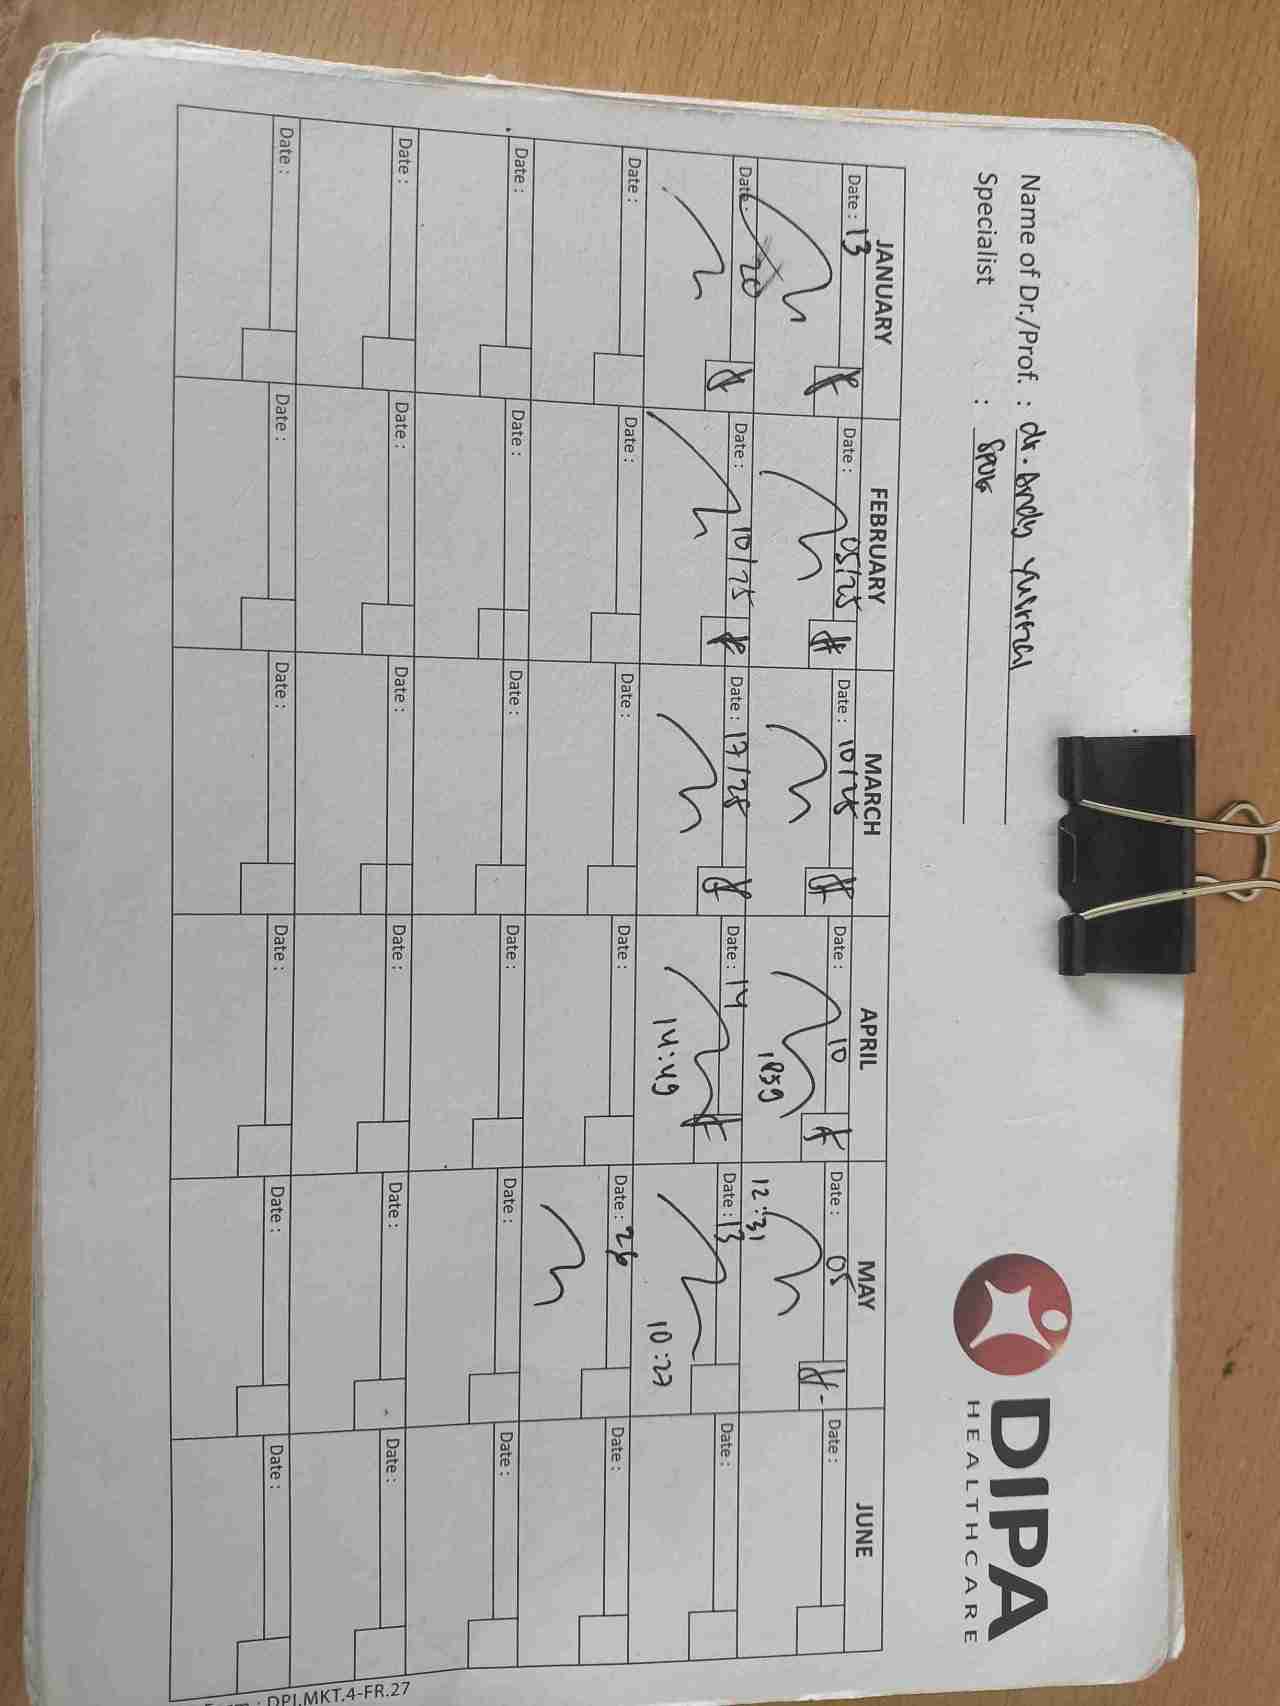 Name of Dr./Prof. : dr. Andy Yusrizal
Specialist :
DIPA
HEALTHCARE
JANUARY FEBRUARY MARCH APRIL MAY JUNE
Date : 13 Date : 05/25 Date : 10/25 Date : 10 Date : 05 Date :
12:31
Date : 20 Date : 10/25 Date : 17/25 Date : 14 Date : 13 Date :
14:49 10:27
Date : Date : Date : Date : Date : 26 Date :
Date : Date : Date : Date : Date : Date :
Date : Date : Date : Date : Date : Date :
Date : Date : Date : Date : Date : Date :
: DPI.MKT.4-FR.27